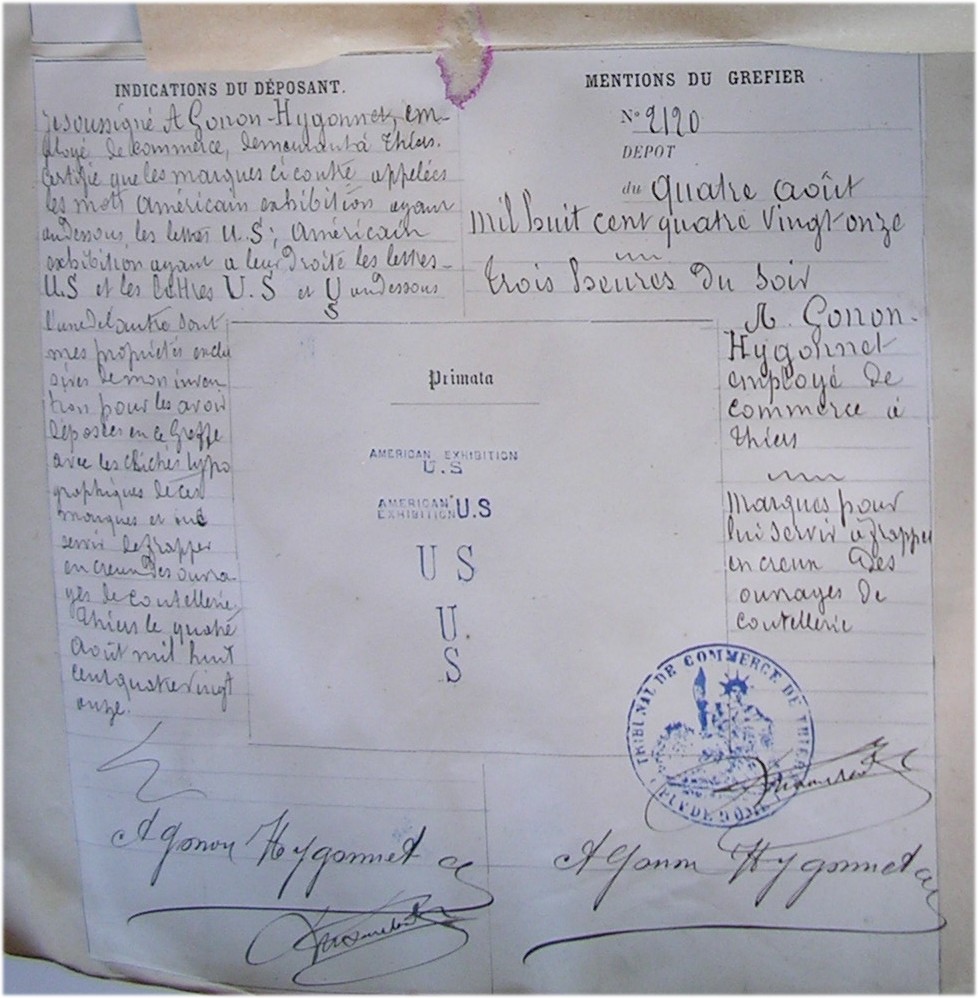 INDICATIONS DU DÉPOSANT.
je soussigné A Gonon-Hygonnet, em-
ployé de commerce, demeurant à Thiers.
Certifie que les marques ci contre appelées
les mots américain exhibition ayant
au dessous, les lettres U.S; américain
exhibition ayant a leur droite les lettres-
U.S et les lettres U.S et U audessous
S
l'une de l'autre sont
mes propriétés exclu
sives de mon inven
tion pour les avoir
déposées en ce Greffe
avec les clichés typo
graphiques de ces
marques et
servir de frapper
en creux des ouvra-
ges de coutellerie.
Thiers le quatre
Août mil huit
cent quatre vingt
onze.
MENTIONS DU GREFIER
N° 2120
DÉPOT
du quatre août
mil huit cent quatre vingt onze
trois heures du soir
A. Gonon-
Hygonnet
employé de
commerce à
Thiers
Marques pour
lui servir à frapper
en creux des
ouvrages de
coutellerie
Primata
AMERICAN EXHIBITION
U.S
AMERICAN
EXHIBITION U.S
U S
U.
S
TRIBUNAL DE COMMERCE DE THIERS
PUY DE DOME
A Gonon Hygonnet
A Gonon Hygonnet